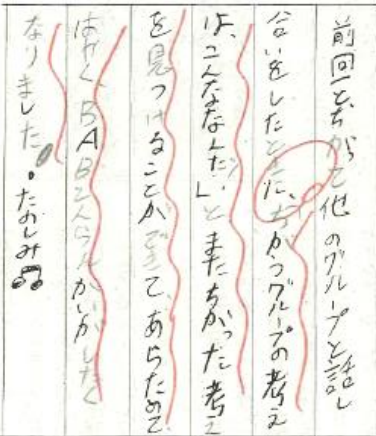 前回とちがって他のグループと話し
合いをしたときに、ちがうグループの考え
は、こんななんだ。」とまたちがった考え
を見つけることができて、あらためて
はやく、BABどんらんかいがしたく
なりました。たのしみ♫